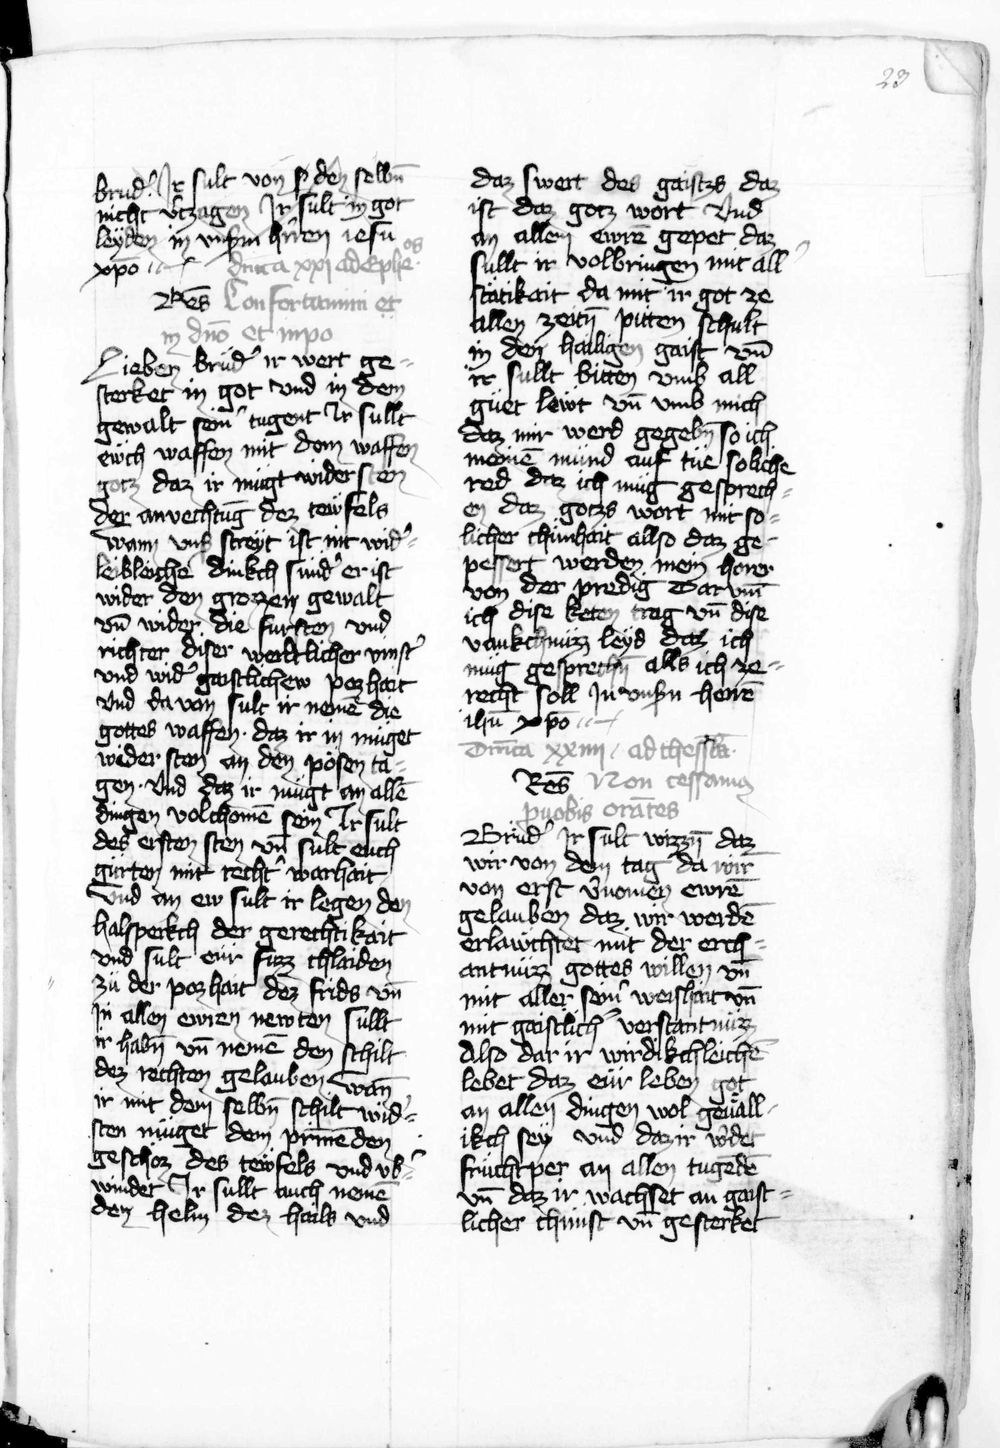 23
brud̾ Ir sult von den selbn̄
nicht v̾czagen Ir sult in got
leÿden in vnßm hr̄ren iesu
xp̄o
dn̄ica xxi ad Ephe.os
Res Confortamini et
in dn̄o et in po
Lieben brüd̾ ir wert ge=
sterket in got vnd in dem
gewalt sein̾ tugent Ir sullt
ewch waffen mit dem waffen
gotz daz ir mügt wider sten
der anvechtūg dez tewfels
wann vns streÿt ist nit wid̾=
leibleiche dinkch sund̾ er ist
wider den grozzen gewalt
vn̄ wider die fursten vnd
richter diser werltlicher vinst̾
vnd wid̾ gaistlichew pozhait
vnd da von sult ir nemē die
gottes waffen. daz ir in müget
wider sten an den pösen ta=
gen. vnd daz ir mügt an allē
dingen volchomē sein Ir sult
des ersten sten vn̄ sult euch
gürten mit recht̾ warhait
vnd an ew sult ir legen den
halsperkch der gerechtikait
vnd sult eür füzz chlaiden
zü der pozhait dez frids vn̄
in allen ewren newten sullt
ir habn̄ vn̄ nemē den schilt
dez rechten gelauben wan̄
ir mit dem selbn̄ schilt wid̾=
sten müget dem prīnēden
geschoz des tewfels vnd vb̾=
winder Ir sullt auch nemē
den helm dez hails vnd
daz swert des gaistzs daz
ist daz gotz wort vnd
an allem ewrē gepet daz
sullt ir volbringen mit all̾
stätikait da mit ir got ze
allen zeitn̄ pitten schult
in den hailigen gaist vn̄
ir sullt bitten vmb all
güet lewt vn̄ vmb mich
daz mir werd gegebn̄ so ich
meinē mund auf tüe soliche
red daz ich müg gesprech=
en daz gotzs wort mit so=
licher chünhait allso daz ge=
pessert werden mein horer
von der predig Darvm̄
ich dise keten trag vn̄ dise
vankchnüzz leyd daz ich
müg gesprechn̄ alls ich ze=
recht soll In vnßn herrē
ih̄u xp̄o
Dn̄ica xxiiii ad thessa.
Res Non cessamus
pro vobis orātes
Brüd̾ Ir sult wizzn̄ daz
wir von dem tag da wir
von erst v̾nomen ewrē
gelauben daz wir werdē
erlawchtet mit der erch=
antnüzz gottes willen vn̄
mit aller sein̾ weishait vn̄
mit gaistlich̾ verstantnüzz
Also dar ir wirdikchleichē
lebet daz eür leben got
an allen dingen wol geuäll=
ikch sey vnd daz ir w̾det
früchtper an allen tugēdē
vn̄ daz ir wachset an gaist=
licher chunst vn̄ gesterket